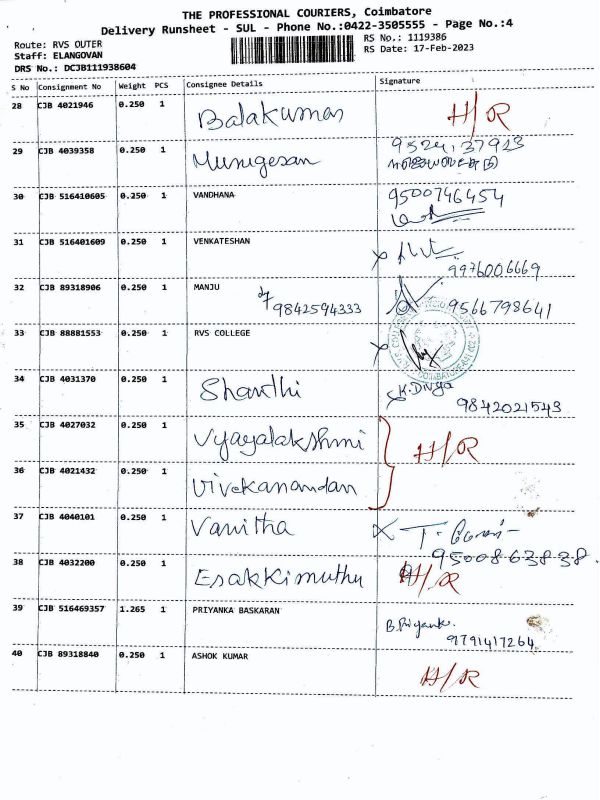 THE PROFESSIONAL COURIERS, Coimbatore
Delivery Runsheet - SUL - Phone No.:0422-3505555 - Page No.:4
Route: RVS OUTER
Staff: ELANGOVAN
DRS No.: DCJB111938604
RS No.: 1119386
RS Date: 17-Feb-2023
S No Consignment No Weight PCS Consignee Details Signature
28 CJB 4021946 0.250 1 Balakumar H/R
29 CJB 4039358 0.250 1 Murugesan
30 CJB 516410605 0.250 1 VANDHANA 9500746454
31 CJB 516401609 0.250 1 VENKATESHAN
9976006669
32 CJB 89318906 0.250 1 MANJU
9842594333 9566798641
33 CJB 88881553 0.250 1 RVS COLLEGE
34 CJB 4031370 0.250 1 Shanthi K. Divya
9842021543
35 CJB 4027032 0.250 1 Vyayalakshmi H/R
36 CJB 4021432 0.250 1 Vivekanandan
37 CJB 4040101 0.250 1 Vanitha
9500863838
38 CJB 4032200 0.250 1 Esakkimuthu H/R
39 CJB 516469357 1.265 1 PRIYANKA BASKARAN B. Priyanka
9791417264
40 CJB 89318840 0.250 1 ASHOK KUMAR H/R